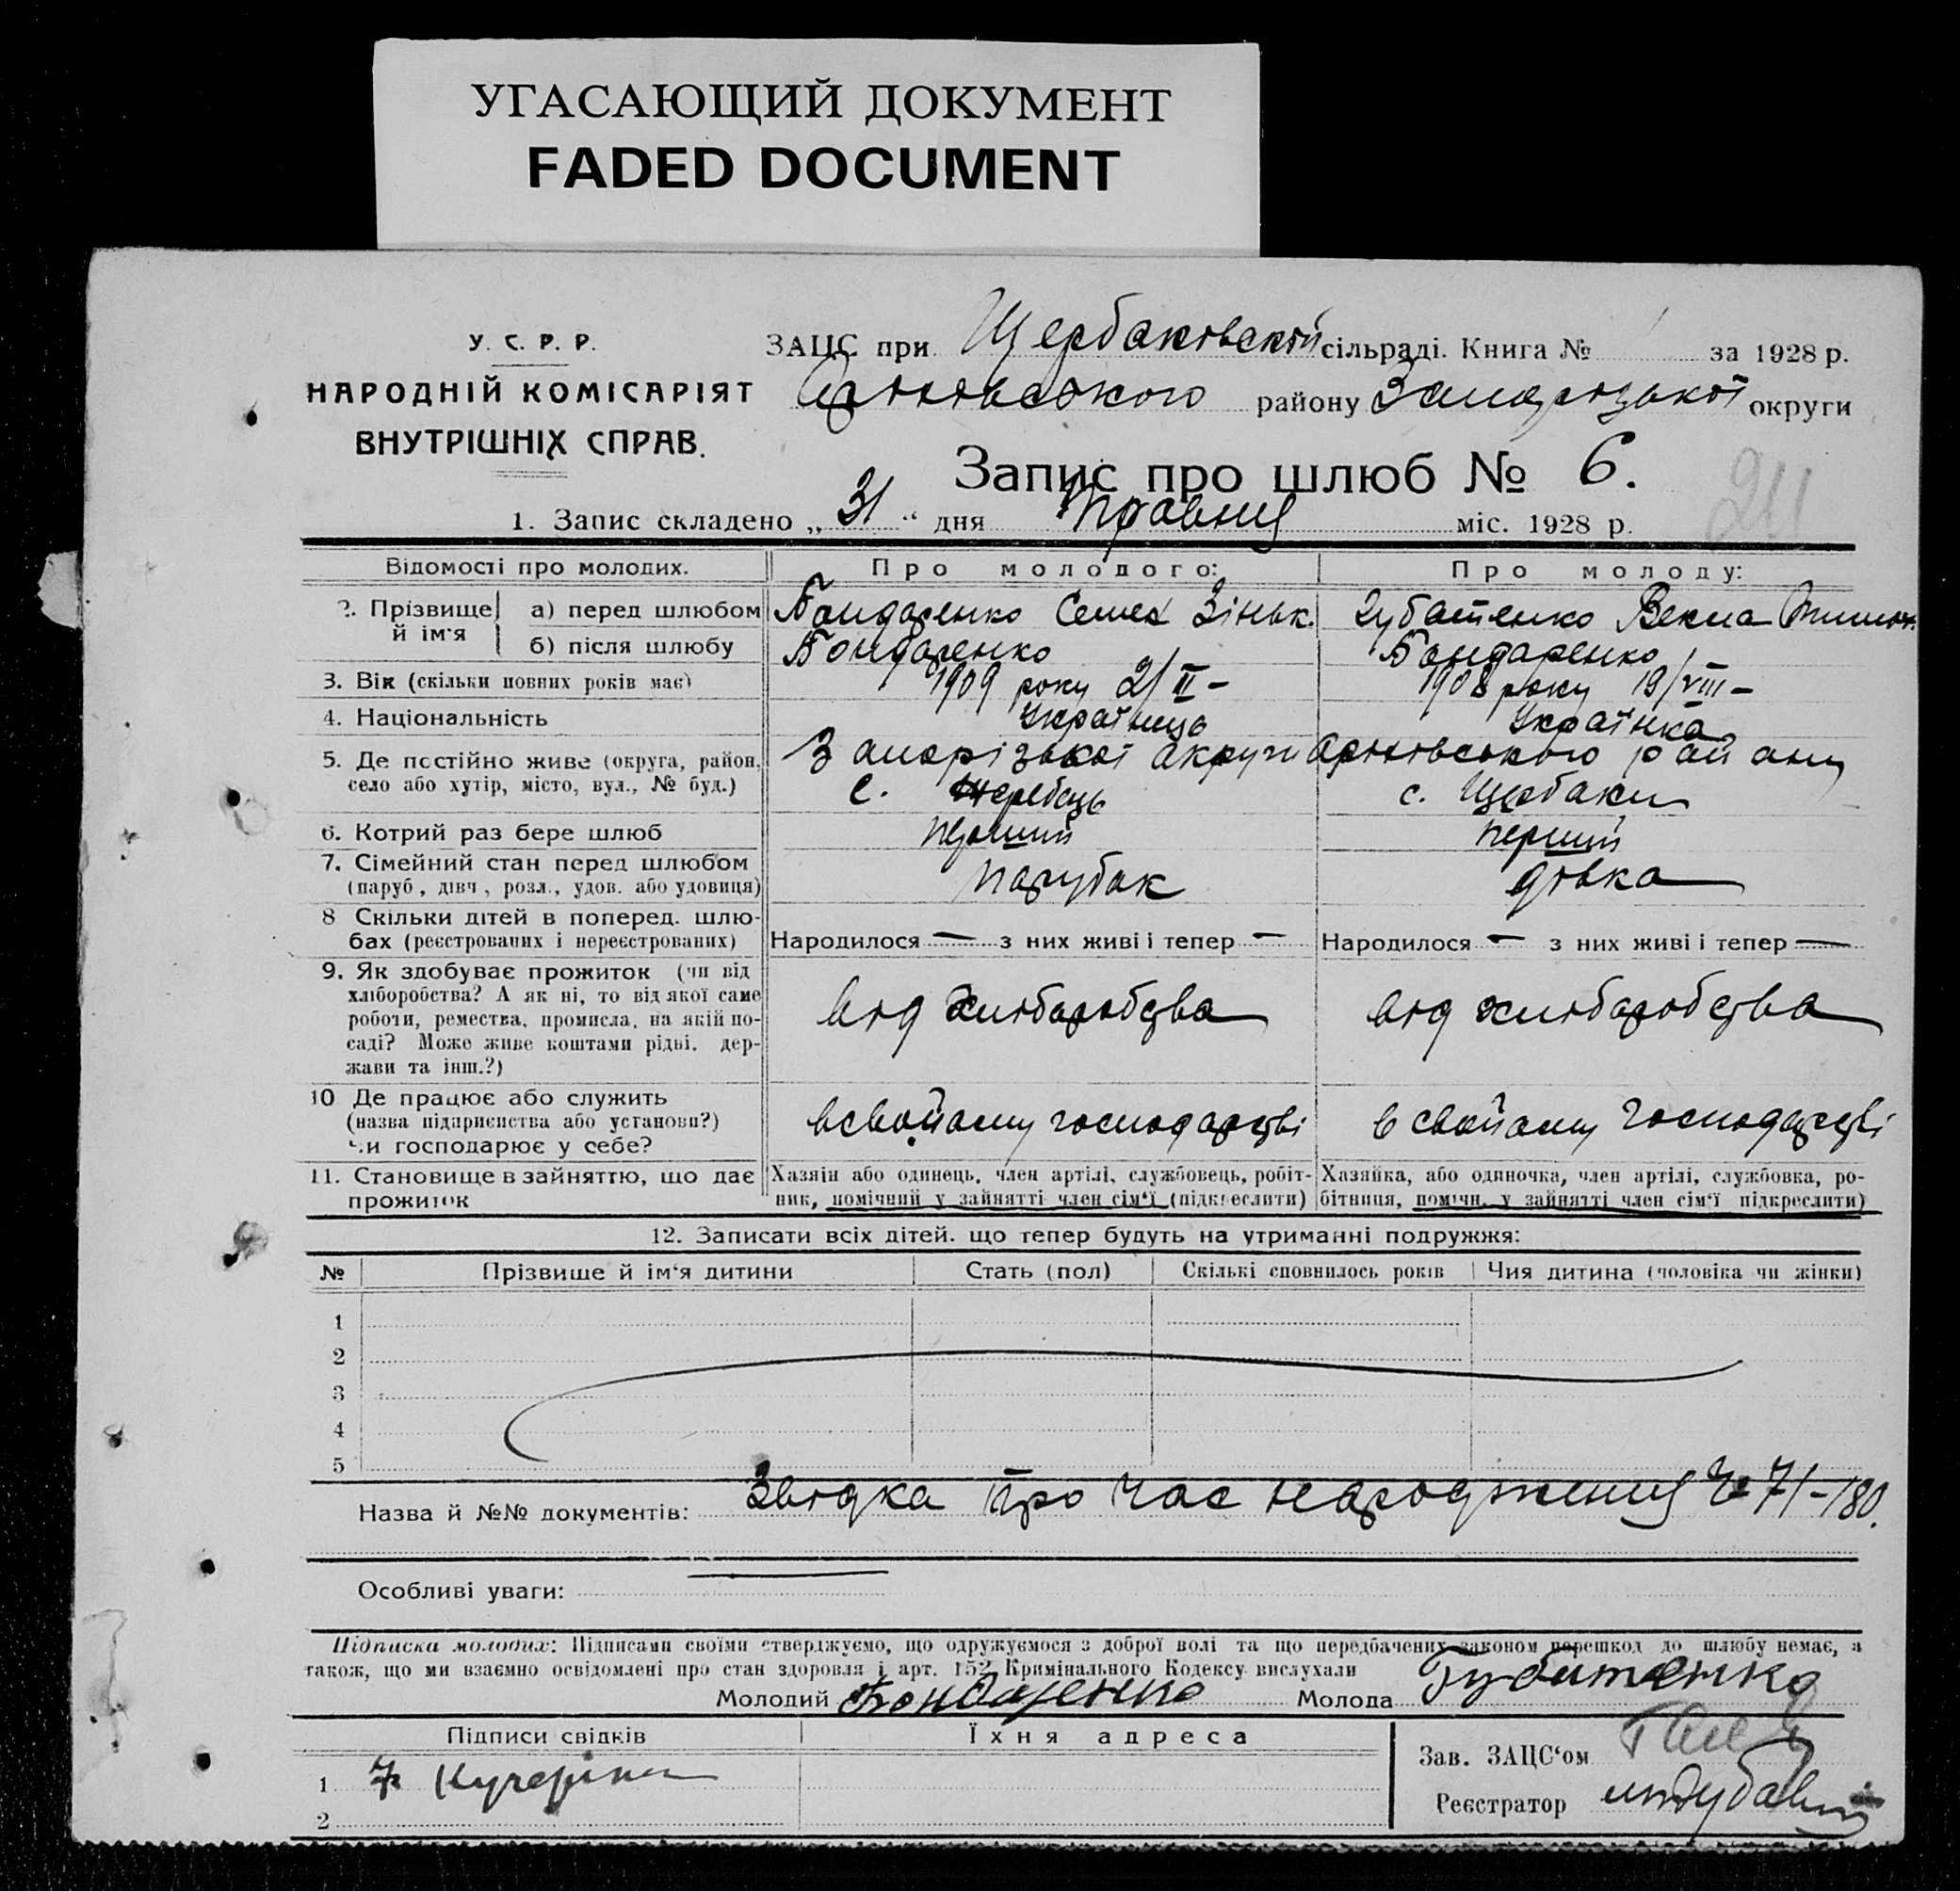 УГАСАЮЩИЙ ДОКУМЕНТ
FADED DOCUMENT
У. С. Р. Р.
НАРОДНІЙ КОМІСАРІЯТ
ВНУТРІШНІХ СПРАВ.
ЗАЦС при Щербаківській сільраді. Книга № за 1928 р.
району Запорізької округи
Запис про шлюб № 6.
1. Запис складено „31“ дня Травня міс. 1928 р.
Відомості про молодих. Про молодого: Про молоду:
2. Прізвище й ім'я
а) перед шлюбом Бондаренко Семен Зіньк. Зубатенко Векла
б) після шлюбу Бондаренко Бондаренко
3. Вік (скільки повних років має) 1909 року 2/ІІ – 1908 року 19/VIII –
4. Національність Українець Українка
5. Де постійно живе (округа, район, Запорізької округи району
село або хутір, місто, вул., № буд.) с. Жеребець с. Щербаки
6. Котрий раз бере шлюб перший перший
7. Сімейний стан перед шлюбом
(паруб., дівч., розл., удов. або удовиця) парубак дівка
8 Скільки дітей в поперед. шлю-
бах (реєстрованих і нереєстрованих) Народилося — з них живі і тепер — Народилося — з них живі і тепер —
9. Як здобуває прожиток (чи від
хліборобства? А як ні, то від якої саме
роботи, ремества, промисла, на якій по-
саді? Може живе коштами рідні, дер-
жави та інш.?)
від хліборобства від хліборобства
10 Де працює або служить
(назва підприємства або установи?)
чи господарює у себе?
в свойому господарстві в свойому господарстві
11. Становище в зайняттю, що дає
прожиток
Хазяїн або одинець, член артілі, службовець, робіт-
ник, помічний у зайнятті член сім'ї (підкреслити)
Хазяйка, або одиночка, член артілі, службовка, ро-
бітниця, помічн. у зайнятті член сім'ї підкреслити)
12. Записати всіх дітей. що тепер будуть на утриманні подружжя:
№ Прізвище й ім'я дитини Стать (пол) Скількі сповнилось років Чия дитина (чоловіка чи жінки)
1
2
3
4
5
Назва й №№ документів: Звідка про час народження № 71–180.
Особливі уваги:
Підписка молодих: Підписами своїми стверджуємо, що одружуємося з доброї волі та що передбачених законом перешкод до шлюбу немає, а
також, що ми взаємно освідомлені про стан здоровля і арт. 152 Кримінального Кодексу вислухали
Молодий Бондаренко Молода
Підписи свідків Їхня адреса
Зав. ЗАЦС'ом
1
Реєстратор
2